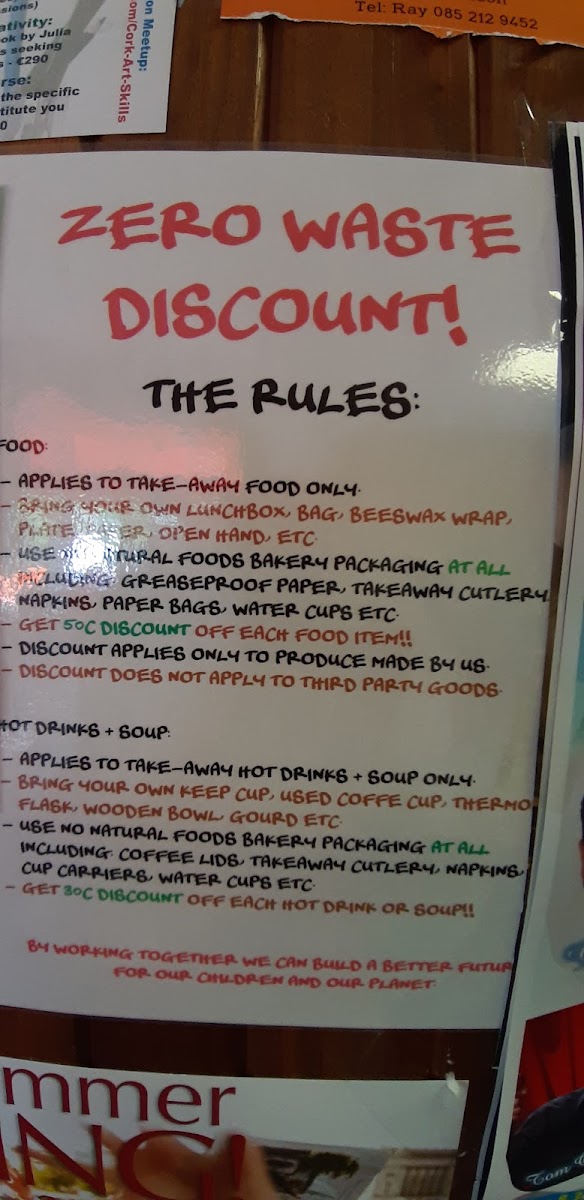 sions)
ativity:
ok by Julia
s seeking
s - €290
rse:
the specific
titute you
0
on Meetup:
om/Cork-Art-Skills
Tel: Ray 085 212 9452
ZERO WASTE
DISCOUNT!
THE RULES:
FOOD:
- APPLIES TO TAKE-AWAY FOOD ONLY.
- BRING YOUR OWN LUNCHBOX, BAG, BEESWAX WRAP,
PLATE, OPEN HAND, ETC.
- USE NATURAL FOODS BAKERY PACKAGING AT ALL
INCLUDING: GREASEPROOF PAPER, TAKEAWAY CUTLERY,
NAPKINS, PAPER BAGS, WATER CUPS ETC.
- GET 50C DISCOUNT OFF EACH FOOD ITEM!!
- DISCOUNT APPLIES ONLY TO PRODUCE MADE BY US.
- DISCOUNT DOES NOT APPLY TO THIRD PARTY GOODS.
HOT DRINKS + SOUP:
- APPLIES TO TAKE-AWAY HOT DRINKS + SOUP ONLY.
- BRING YOUR OWN KEEP CUP, USED COFFE CUP, THERMO
FLASK, WOODEN BOWL, GOURD ETC.
- USE NO NATURAL FOODS BAKERY PACKAGING AT ALL
INCLUDING: COFFEE LIDS, TAKEAWAY CUTLERY, NAPKINS,
CUP CARRIERS, WATER CUPS ETC.
- GET 30C DISCOUNT OFF EACH HOT DRINK OR SOUP!!
BY WORKING TOGETHER WE CAN BUILD A BETTER FUTUR
FOR OUR CHILDREN AND OUR PLANET.
mmer
NG!
Tom